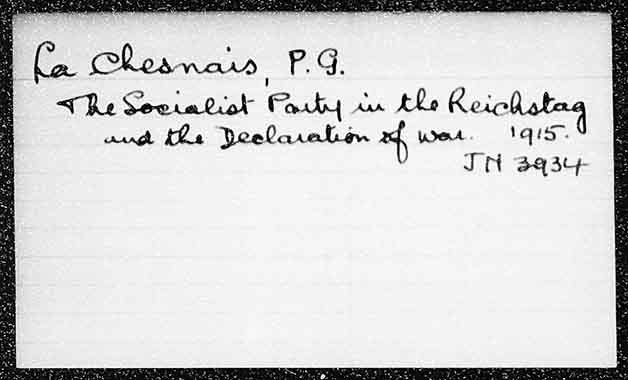 La Chesnais, P. G.
The Socialist Party in the Reichstag
and the Declaration of war. 1915.
JN 3934